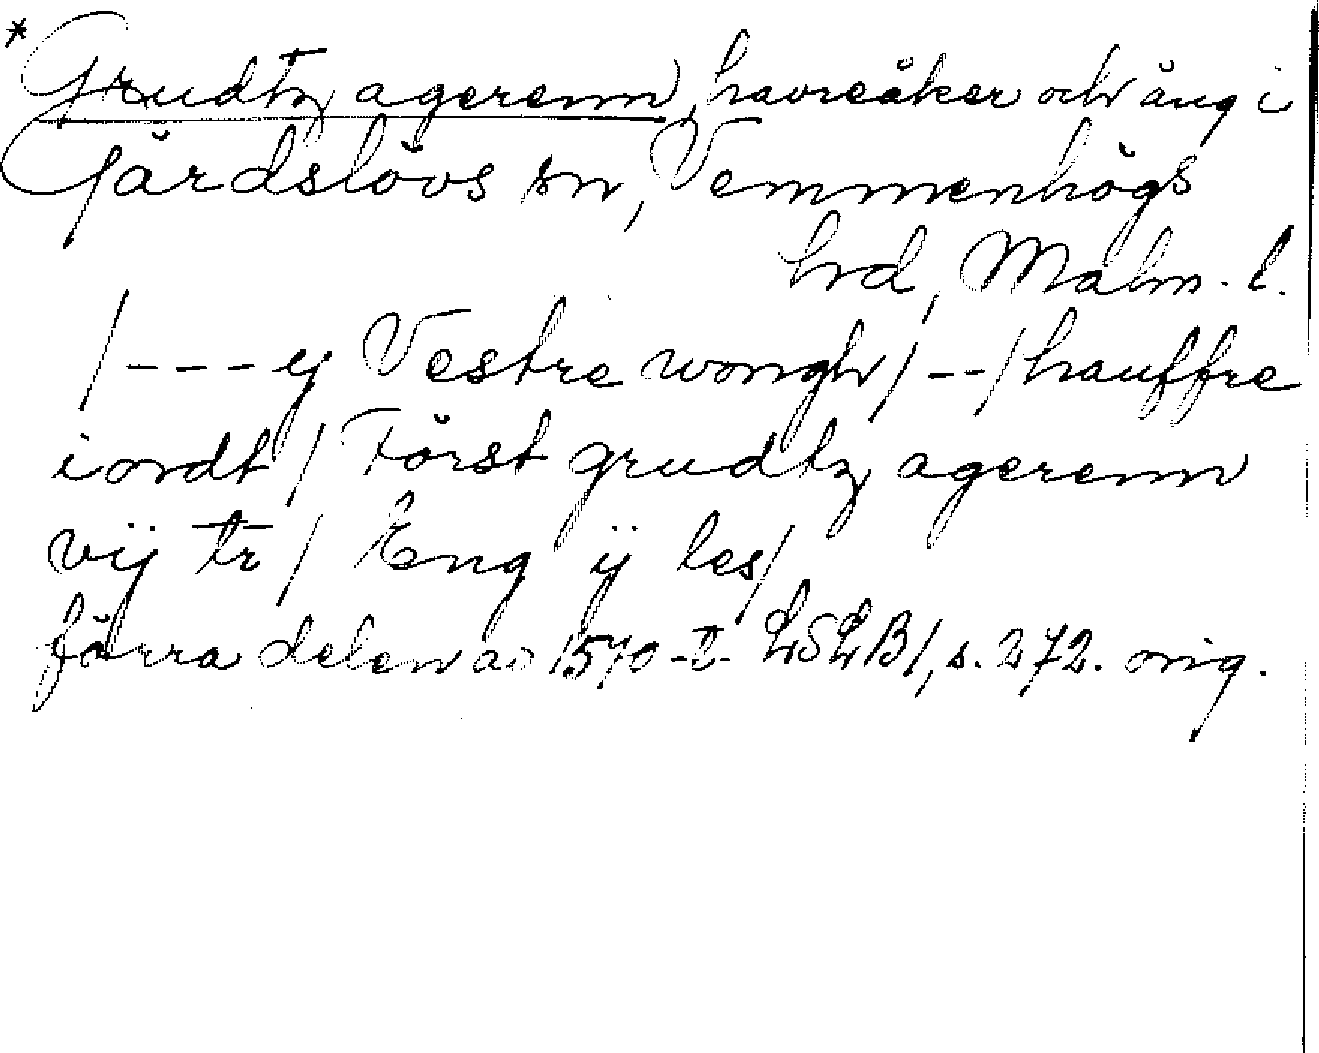 * Grudtz agerenn, havreåker och äng i
Gärdslövs sn, Vemmenhögs
hrd, Malm. l.
/---y Vestre wongh/--/hauffre
iordt/ Först grudtz agerenn
vij tr/ Eng ij les/
förra delen av 1570-t. LSLB1, s. 272. orig.